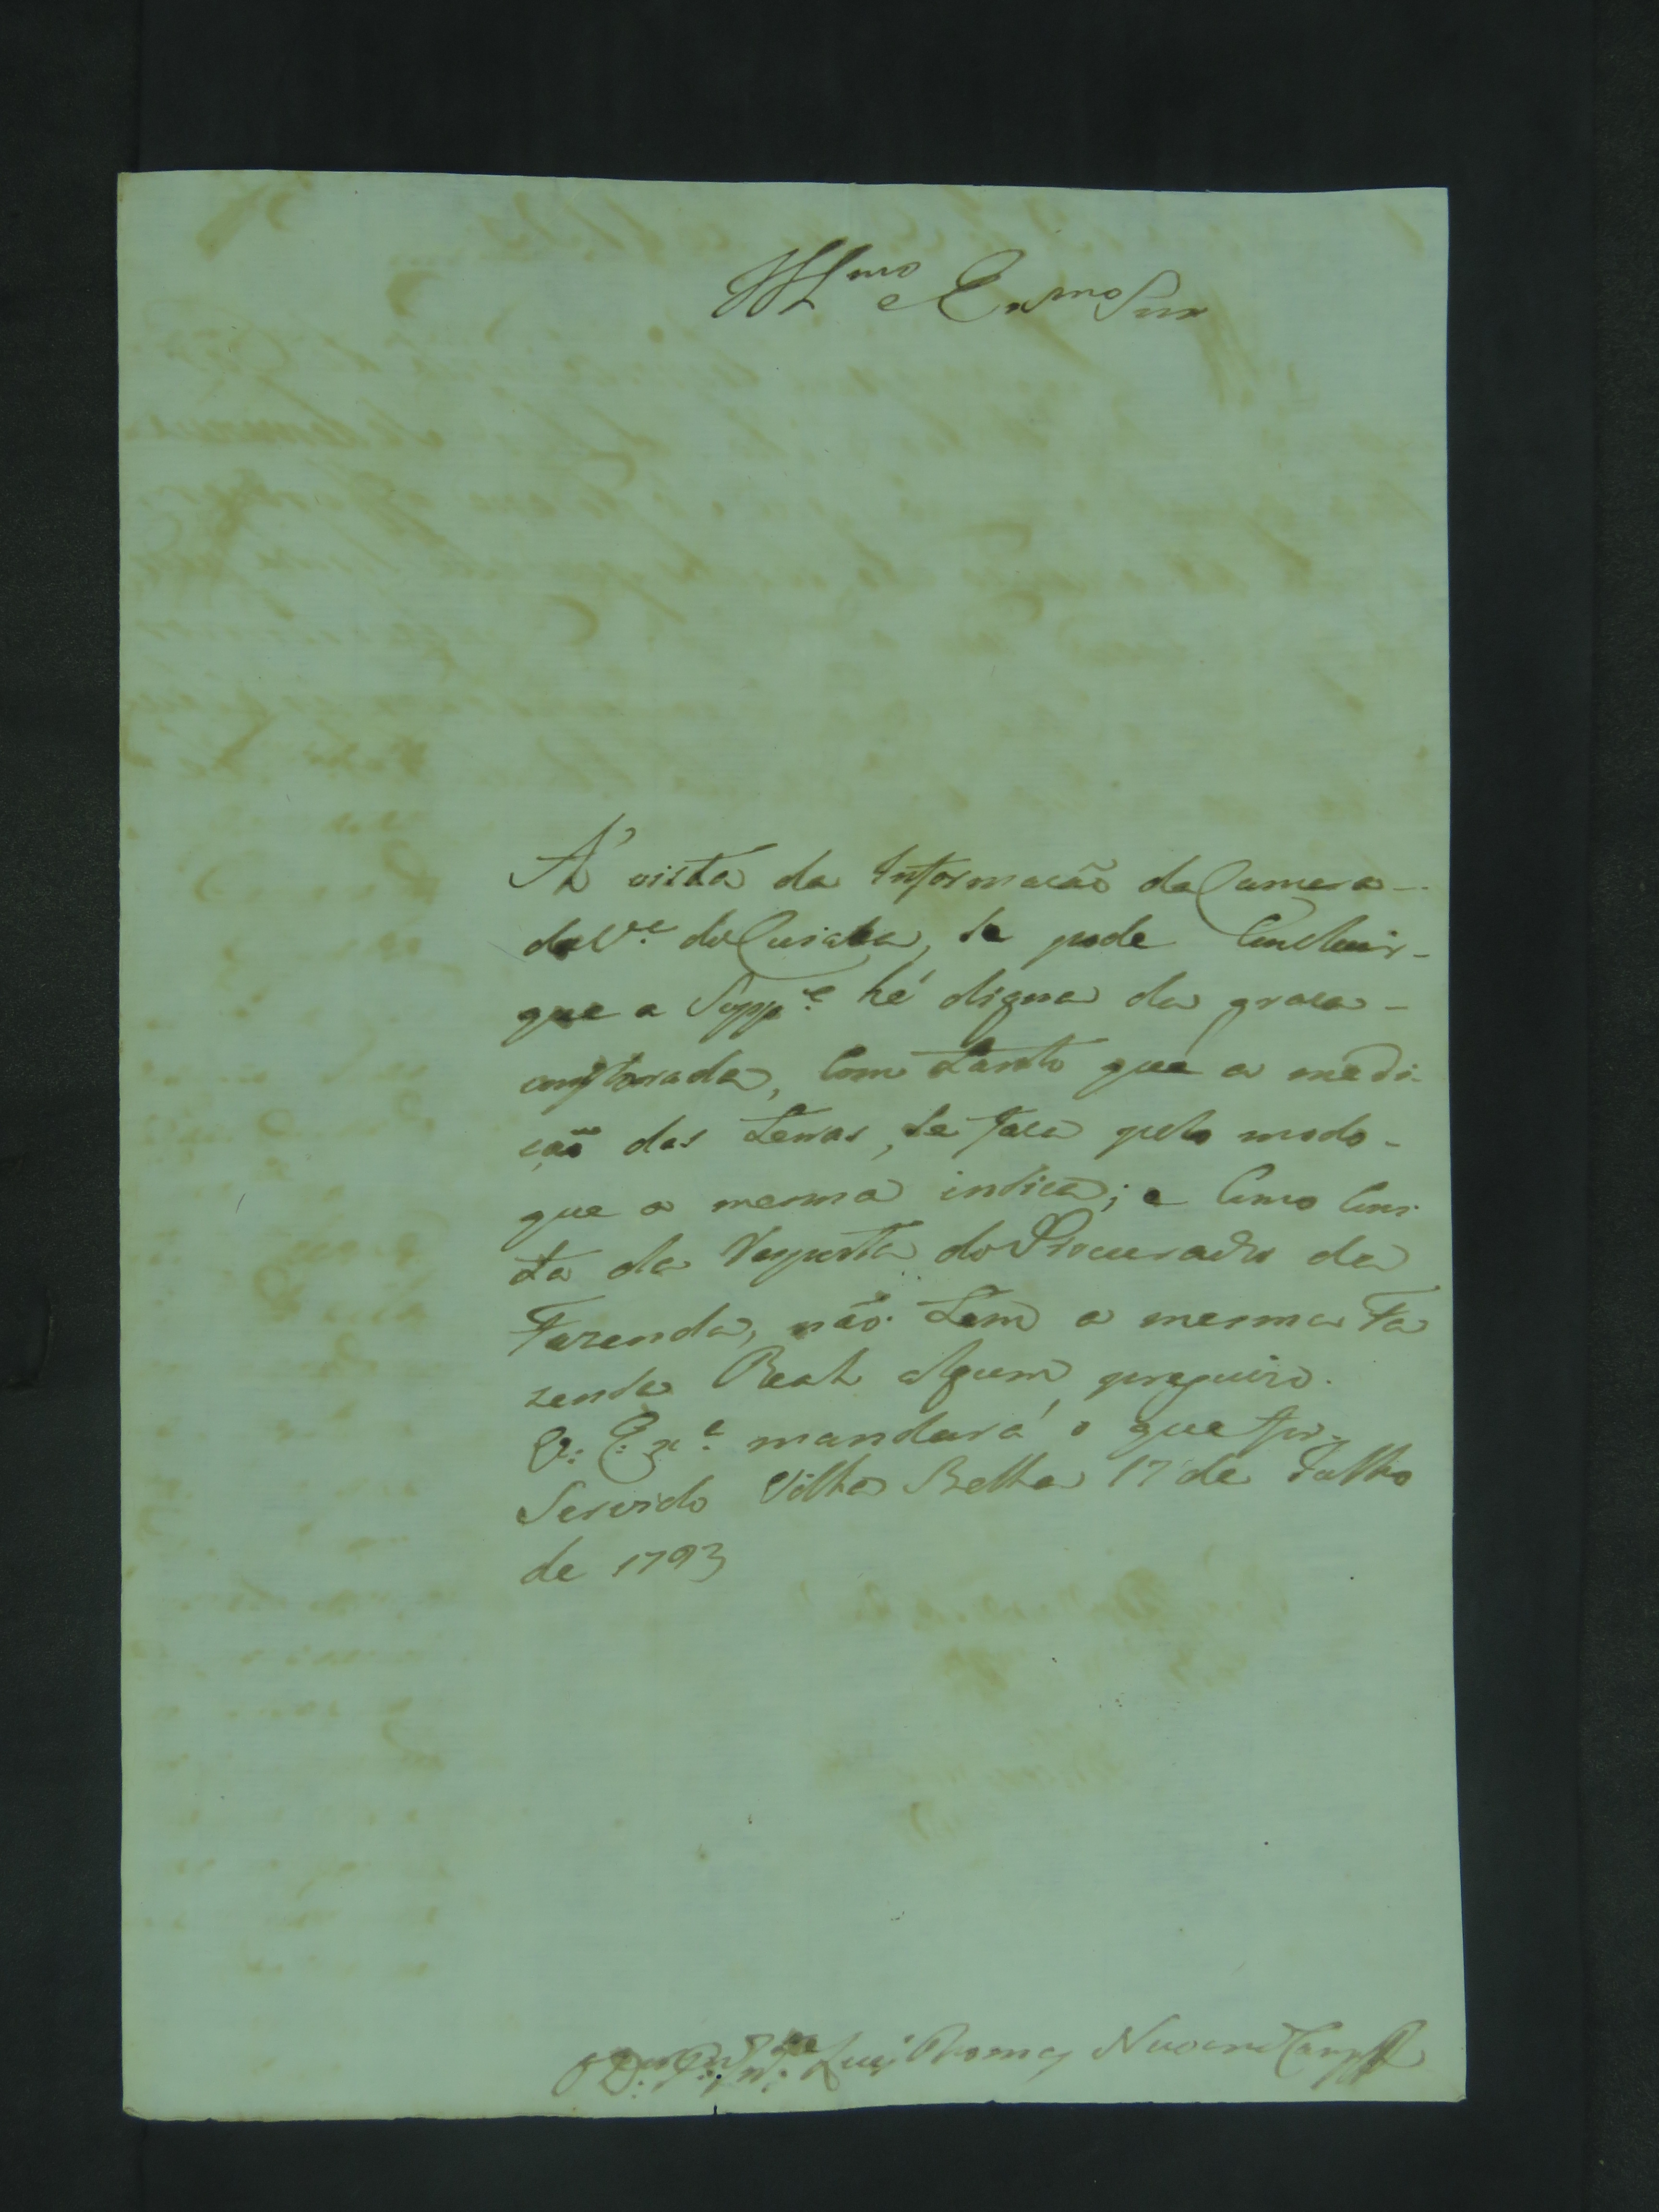 Ill.mo e Ex.mo Snr
A' vista da Informação da Camera
da V.ª do Cuiaba, se pode Concluir
que a Supp.e hé digna da graça
implorada, Com tanto que a medi-
ção das terras, se faça pelo modo
que a mesma indica; e Como Cons-
ta da Reposta do Procurador da
Fazenda, não tem a mesma Fa
zenda Real algum prejuizo.
V. Ex.ª mandará o que for
Servido Villa Bella 17 de Julho
de 1793
Luiz